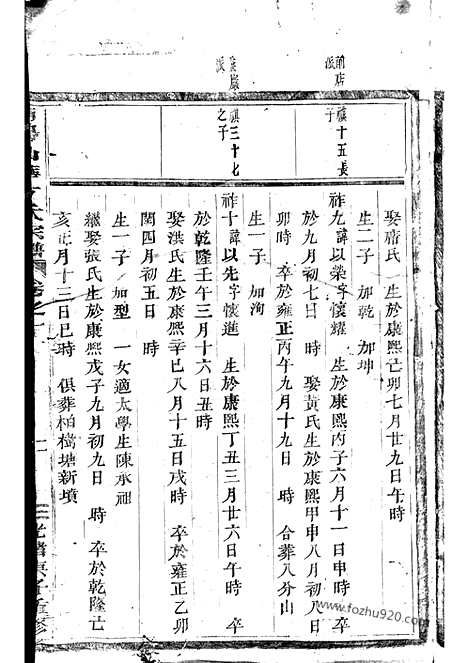 前店派
祺十五長子
娶喻氏 生於康熙己卯七月廿九日午時
生二子 加乾 加坤
祚九諱以榮字懷耀 生於康熙丙子六月十一日申時 卒
於九月初七日 時 娶黃氏生於康熙甲申八月初八日
卯時 卒於雍正丙午九月十九日 時 合葬八分山
生一子 加洵
祺三十七之子
祚十諱以先字懷進 生於康熙丁丑三月廿六日午時 卒
於乾隆壬午三月十六日丑時
娶洪氏生於康熙辛巳八月十五日戌時 卒於雍正乙卯
閏四月初五日 時
生一子 加型 一女適太學生陳承祖
繼娶張氏生於康熙戊子九月初九日 時 卒於乾隆己
亥正月十三日巳時 俱葬柏樹塘新墳
氏宗譜 卷之
光緒庚子
www.fozhu920.com